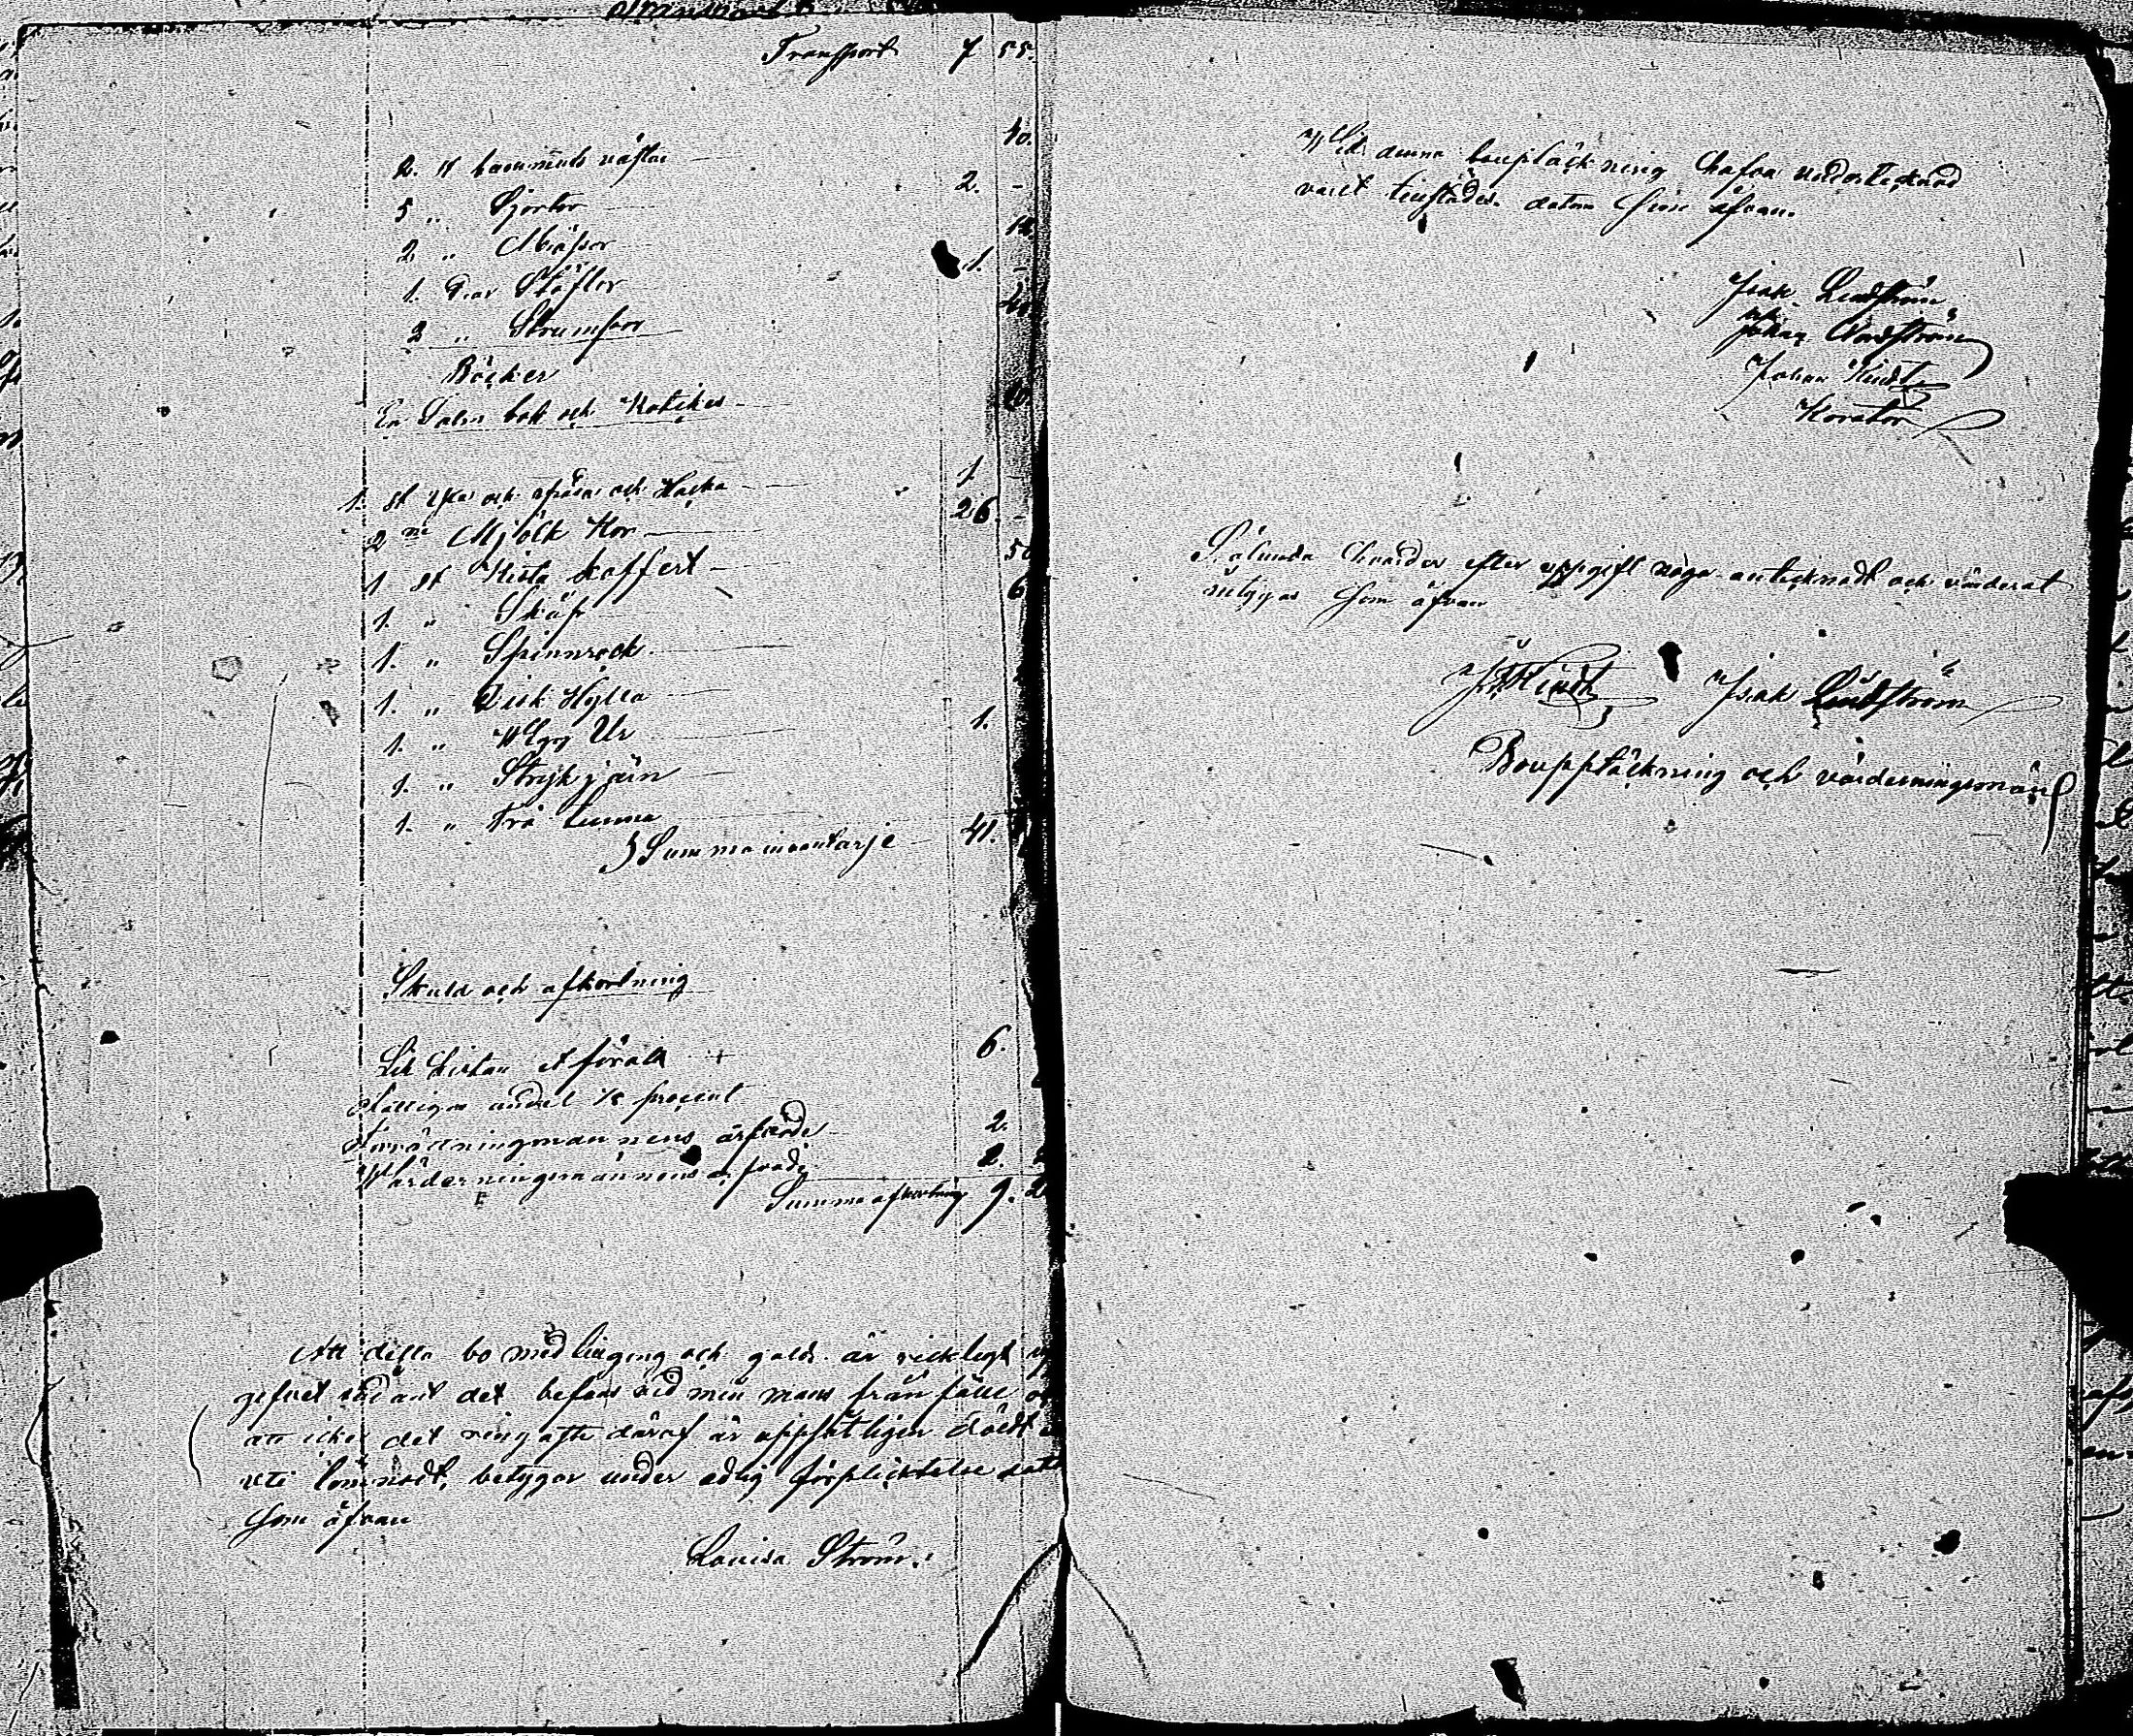 Transport 7 55.
2. st bommuls västar 40.
5 " Sjortor 2. -
2 " Mössor 12.
1. Par Stöflor 1. -
2 " Strumpor 40
Böcker
En Salm bok och Katekes
1. st Yxa och och Hacka 1
2 ne Mjölk Kor 26. -
1 st Kista koffert 50
1. " Skåp 6
1. " Spinnrock
1. " Disk Hylla
1. " Wägg Ur 1.
1. " Strykjärn
1. " Trä
Summa inventarje 41.
Skuld och afkortning
Lik kistan 6.
Fattigas andel 1/8 procent
Förrättningmannens arfvode 2.
Wärderningsmännens arfvode 2.
Summa afkortning 9.
Att detta bo med och gäld är ricktigt
gifvet sådant det befans vid min mans från fälle
att icke det ringaste däraf är uppsåtligen dåldt
uti lemnadt, betygar under edlig förplicktelse
som åfvan
Lovisa Ström.
Wid denna boupptäckning hafva undertecknad
varit datum som åfvan.
Isak Lindström
Johan Lindström
Johan
Korator
Sålunda efter uppgift noga antecknadt och värderat
intygas som åfvan
Isak Lindström
Boupptäckning och värderningsmän